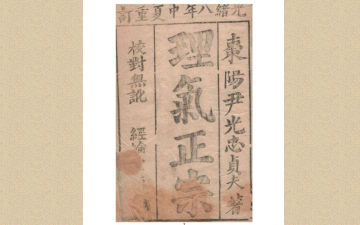 光緒八年中夏重訂
棗陽尹光忠貞夫著
理氣正宗
校對無訛 經綸